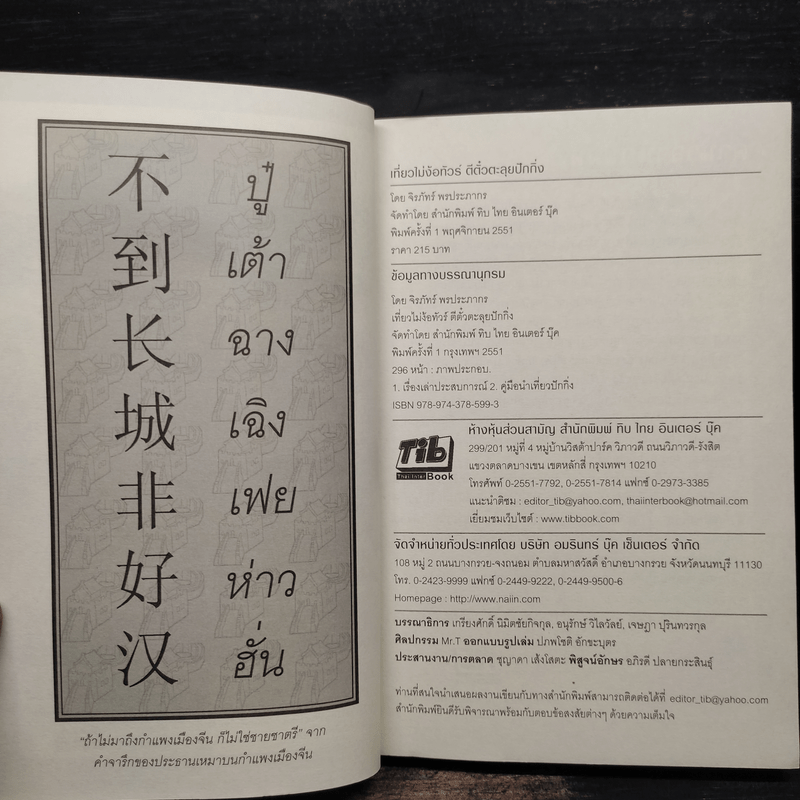 不 ปู๋
到 เต้า
长 ฉาง
城 เฉิง
非 เฟย
好 ห่าว
汉 ฮั่น
"ถ้าไม่มาถึงกำแพงเมืองจีน ก็ไม่ใช่ชายชาตรี" จาก
คำจารึกของประธานเหมาบนกำแพงเมืองจีน
เที่ยวไม่ง้อทัวร์ ตีตั๋วตะลุยปักกิ่ง
โดย จิรภัทร์ พรประภากร
จัดทำโดย สำนักพิมพ์ ทิบ ไทย อินเตอร์ บุ๊ค
พิมพ์ครั้งที่ 1 พฤศจิกายน 2551
ราคา 215 บาท
ข้อมูลทางบรรณานุกรม
โดย จิรภัทร์ พรประภากร
เที่ยวไม่ง้อทัวร์ ตีตั๋วตะลุยปักกิ่ง
จัดทำโดย สำนักพิมพ์ ทิบ ไทย อินเตอร์ บุ๊ค
พิมพ์ครั้งที่ 1 กรุงเทพฯ 2551
296 หน้า : ภาพประกอบ.
1. เรื่องเล่าประสบการณ์ 2. คู่มือนำเที่ยวปักกิ่ง
ISBN 978-974-378-599-3
Tib
Thai Inter Book
ห้างหุ้นส่วนสามัญ สำนักพิมพ์ ทิบ ไทย อินเตอร์ บุ๊ค
299/201 หมู่ที่ 4 หมู่บ้านวิสต้าปาร์ค วิภาวดี ถนนวิภาวดี-รังสิต
แขวงตลาดบางเขน เขตหลักสี่ กรุงเทพฯ 10210
โทรศัพท์ 0-2551-7792, 0-2551-7814 แฟกซ์ 0-2973-3385
แนะนำติชม : editor_tib@yahoo.com, thaiinterbook@hotmail.com
เยี่ยมชมเว็บไซต์ : www.tibbook.com
จัดจำหน่ายทั่วประเทศโดย บริษัท อมรินทร์ บุ๊ค เซ็นเตอร์ จำกัด
108 หมู่ 2 ถนนบางกรวย-จงถนอม ตำบลมหาสวัสดิ์ อำเภอบางกรวย จังหวัดนนทบุรี 11130
โทร. 0-2423-9999 แฟกซ์ 0-2449-9222, 0-2449-9500-6
Homepage : http://www.naiin.com
บรรณาธิการ เกรียงศักดิ์ นิมิตชัยกิจกุล, อนุรักษ์ วิไลวัลย์, เจษฎา ปุรินทวรกุล
ศิลปกรรม Mr.T ออกแบบรูปเล่ม ปภพโชติ อักขะบุตร
ประสานงาน/การตลาด ชุญาดา เส้งโสตะ พิสูจน์อักษร อภิรดี ปลายกระสินธุ์
ท่านที่สนใจนำเสนอผลงานเขียนกับทางสำนักพิมพ์สามารถติดต่อได้ที่ editor_tib@yahoo.com
สำนักพิมพ์ยินดีรับพิจารณาพร้อมกับตอบข้อสงสัยต่างๆ ด้วยความเต็มใจ